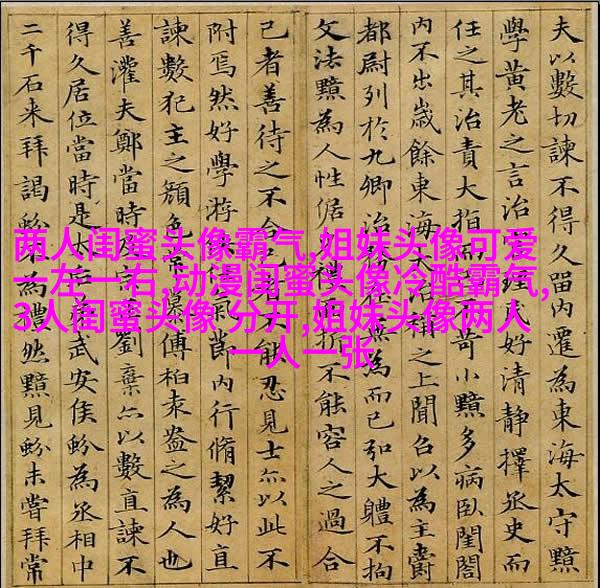 夫以數切諫不得久留內遷為東海太守黯
學黃老之言治理民好清靜擇丞史而
任之其治責大指而苛小黯多病臥閨閤
內不出歲餘東海大治稱之上聞召以為主爵
都尉列於九卿治無為而已弘大體不拘
文法黯為人性倨折不能容人之過合
己者善待之不合己者不能忍見士亦以此不
附焉然好學游俠氣節內行脩絜好直
諫數犯主之顏色常慕傅柏袁盎之為人也
善灌夫鄭當時劉棄亦以數直諫不
得久居位當時是太后武安侯蚡為丞相中
二千石來拜謁蚡為禮然黯見蚡未嘗拜常
两人闺蜜头像霸气,姐妹头像可爱
一左一右,动漫闺蜜头像冷酷霸气,
3人闺蜜头像 分开,姐妹头像两人
一人一张